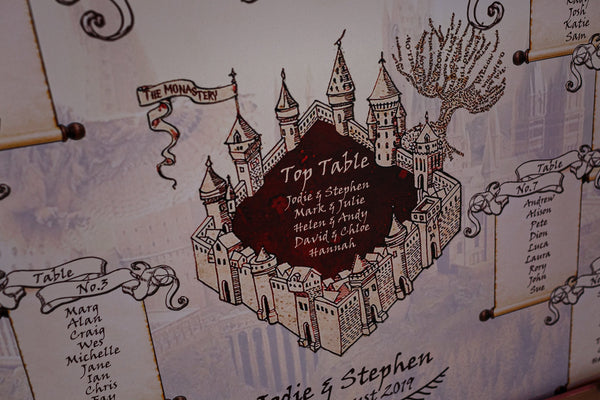 Josh
Katie
Sam
THE MONASTERY
Top Table
Jodie & Stephen
Mark & Julie
Helen & Andy
David & Chloe
Hannah
Table
No.7
Andrew
Alison
Pete
Dion
Luca
Laura
Rory
John
Sue
Table
No.3
Marg
Alan
Craig
Wes
Michelle
Jane
Ian
Chris
Fay
Jodie & Stephen
2019